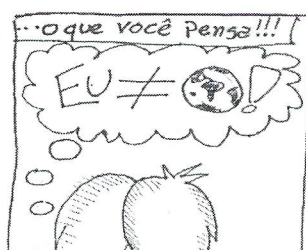 ...o que você pensa!!!
EU ≠ !